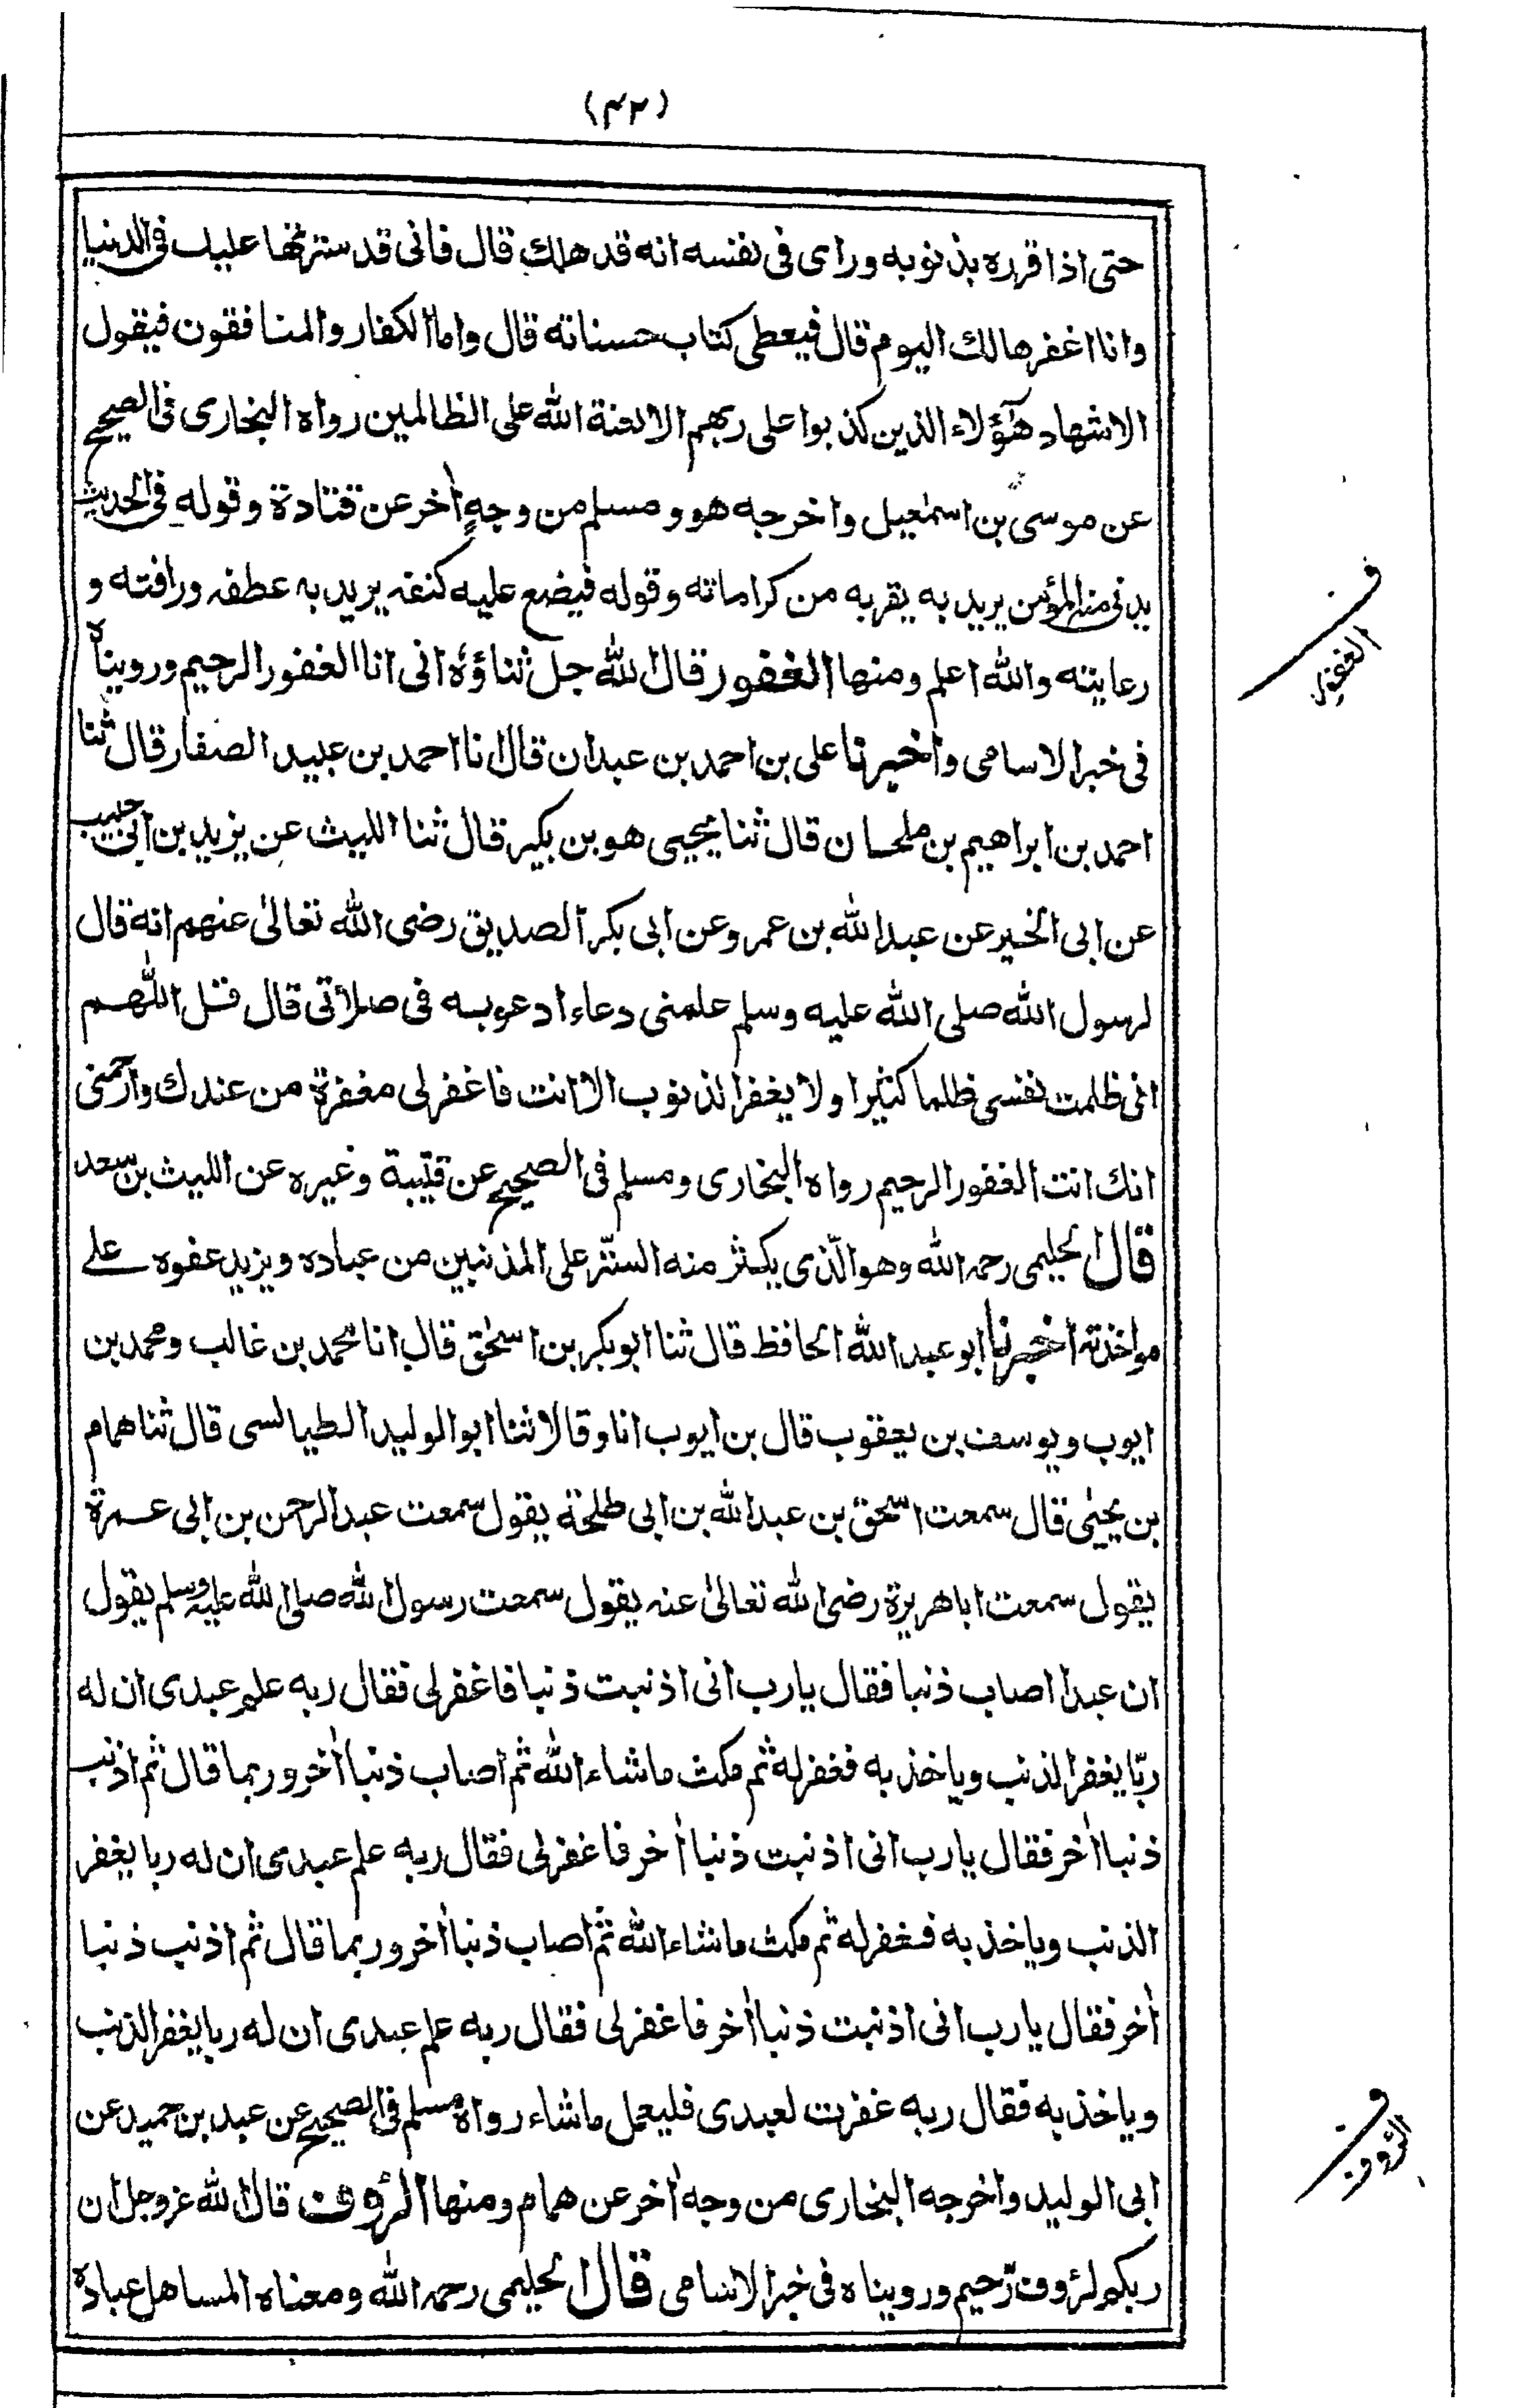 (۴۲)
حتى اذا قرره بذنوبه ورأى فى نفسه انه قد هلك قال فانى قد سترتها عليك فى الدنيا
وانا اغفرها لك اليوم قال فيعطى كتاب حسناته قال واما الكفار والمنافقون فيقول
الاشهاد هٰٓؤلاء الذين كذبوا على ربهم الا لعنة الله على الظالمين رواه البخارى فى الصحيح
عن موسى بن اسمٰعيل واخرجه هو ومسلم من وجهٍ اٰخر عن قتادة وقوله فى الحديث
يدنى منه المؤمن يريد به يقربه من كراماته وقوله فيضع عليه كنفه يريد به عطفه ورافته و
رعايته والله اعلم ومنها الغفور قال الله جل ثناؤه انى انا الغفور الرحيم ورويناه
فى خبر الاسامى واخبرنا على بن احمد بن عبدان قال انا احمد بن عبيد الصفار قال ثنا
احمد بن ابراهيم بن ملحان قال ثنا يحيى هو بن بكير قال ثنا الليث عن يزيد بن ابى حبيب
عن ابى الخير عن عبد الله بن عمرو عن ابى بكر الصديق رضى الله تعالىٰ عنهم انه قال
لرسول الله صلى الله عليه وسلم علمنى دعاء ادعو به فى صلاتى قال قل اللّٰهم
انى ظلمت نفسى ظلما كثيرا ولا يغفر الذنوب الا انت فاغفر لى مغفرة من عندك وارحمنى
انك انت الغفور الرحيم رواه البخارى ومسلم فى الصحيح عن قتيبة وغيره عن الليث بن سعد
قال الحليمى رحمه الله وهو الّذى يكثر منه الستر على المذنبين من عباده ويزيد عفوه على
مواخذته اخبرنا ابو عبد الله الحافظ قال ثنا ابو بكر بن اسحٰق قال انا محمد بن غالب ومحمد بن
ايوب ويوسف بن يعقوب قال بن ايوب انا وقالا ثنا ابو الوليد الطيالسى قال ثنا همام
بن يحيىٰ قال سمعت اسحٰق بن عبد الله بن ابى طلحة يقول سمعت عبد الرحمن بن ابى عمرة
يقول سمعت اباهريرة رضى الله تعالىٰ عنه يقول سمعت رسول الله صلى الله عليه وسلم يقول
ان عبدا اصاب ذنبا فقال يارب انى اذنبت ذنبا فاغفر لى فقال ربه علم عبدى ان له
ربّا يغفر الذنب وياخذ به فغفر له ثم مكث ماشاء الله ثم اصاب ذنبا اٰخر وربما قال ثم اذنب
ذنبا اٰخر فقال يارب انى اذنبت ذنبا اٰخر فاغفر لى فقال ربه علم عبدى ان له ربا يغفر
الذنب وياخذ به فغفر له ثم مكث ماشاء الله ثم اصاب ذنبا اٰخر وربما قال ثم اذنب ذنبا
اٰخر فقال يارب انى اذنبت ذنبا اٰخر فاغفر لى فقال ربه علم عبدى ان له ربا يغفر الذنب
وياخذ به فقال ربه غفرت لعبدى فليعمل ماشاء رواه مسلم فى الصحيح عن عبد بن حميد عن
ابى الوليد واخرجه البخارى من وجه اٰخر عن همام ومنها الرؤف قال الله عزوجل ان
ربكم لرؤف رّحيم ورويناه فى خبر الاسامى قال الحليمى رحمه الله ومعناه المساهل عباده
ف
الغفور
ف
الرؤف